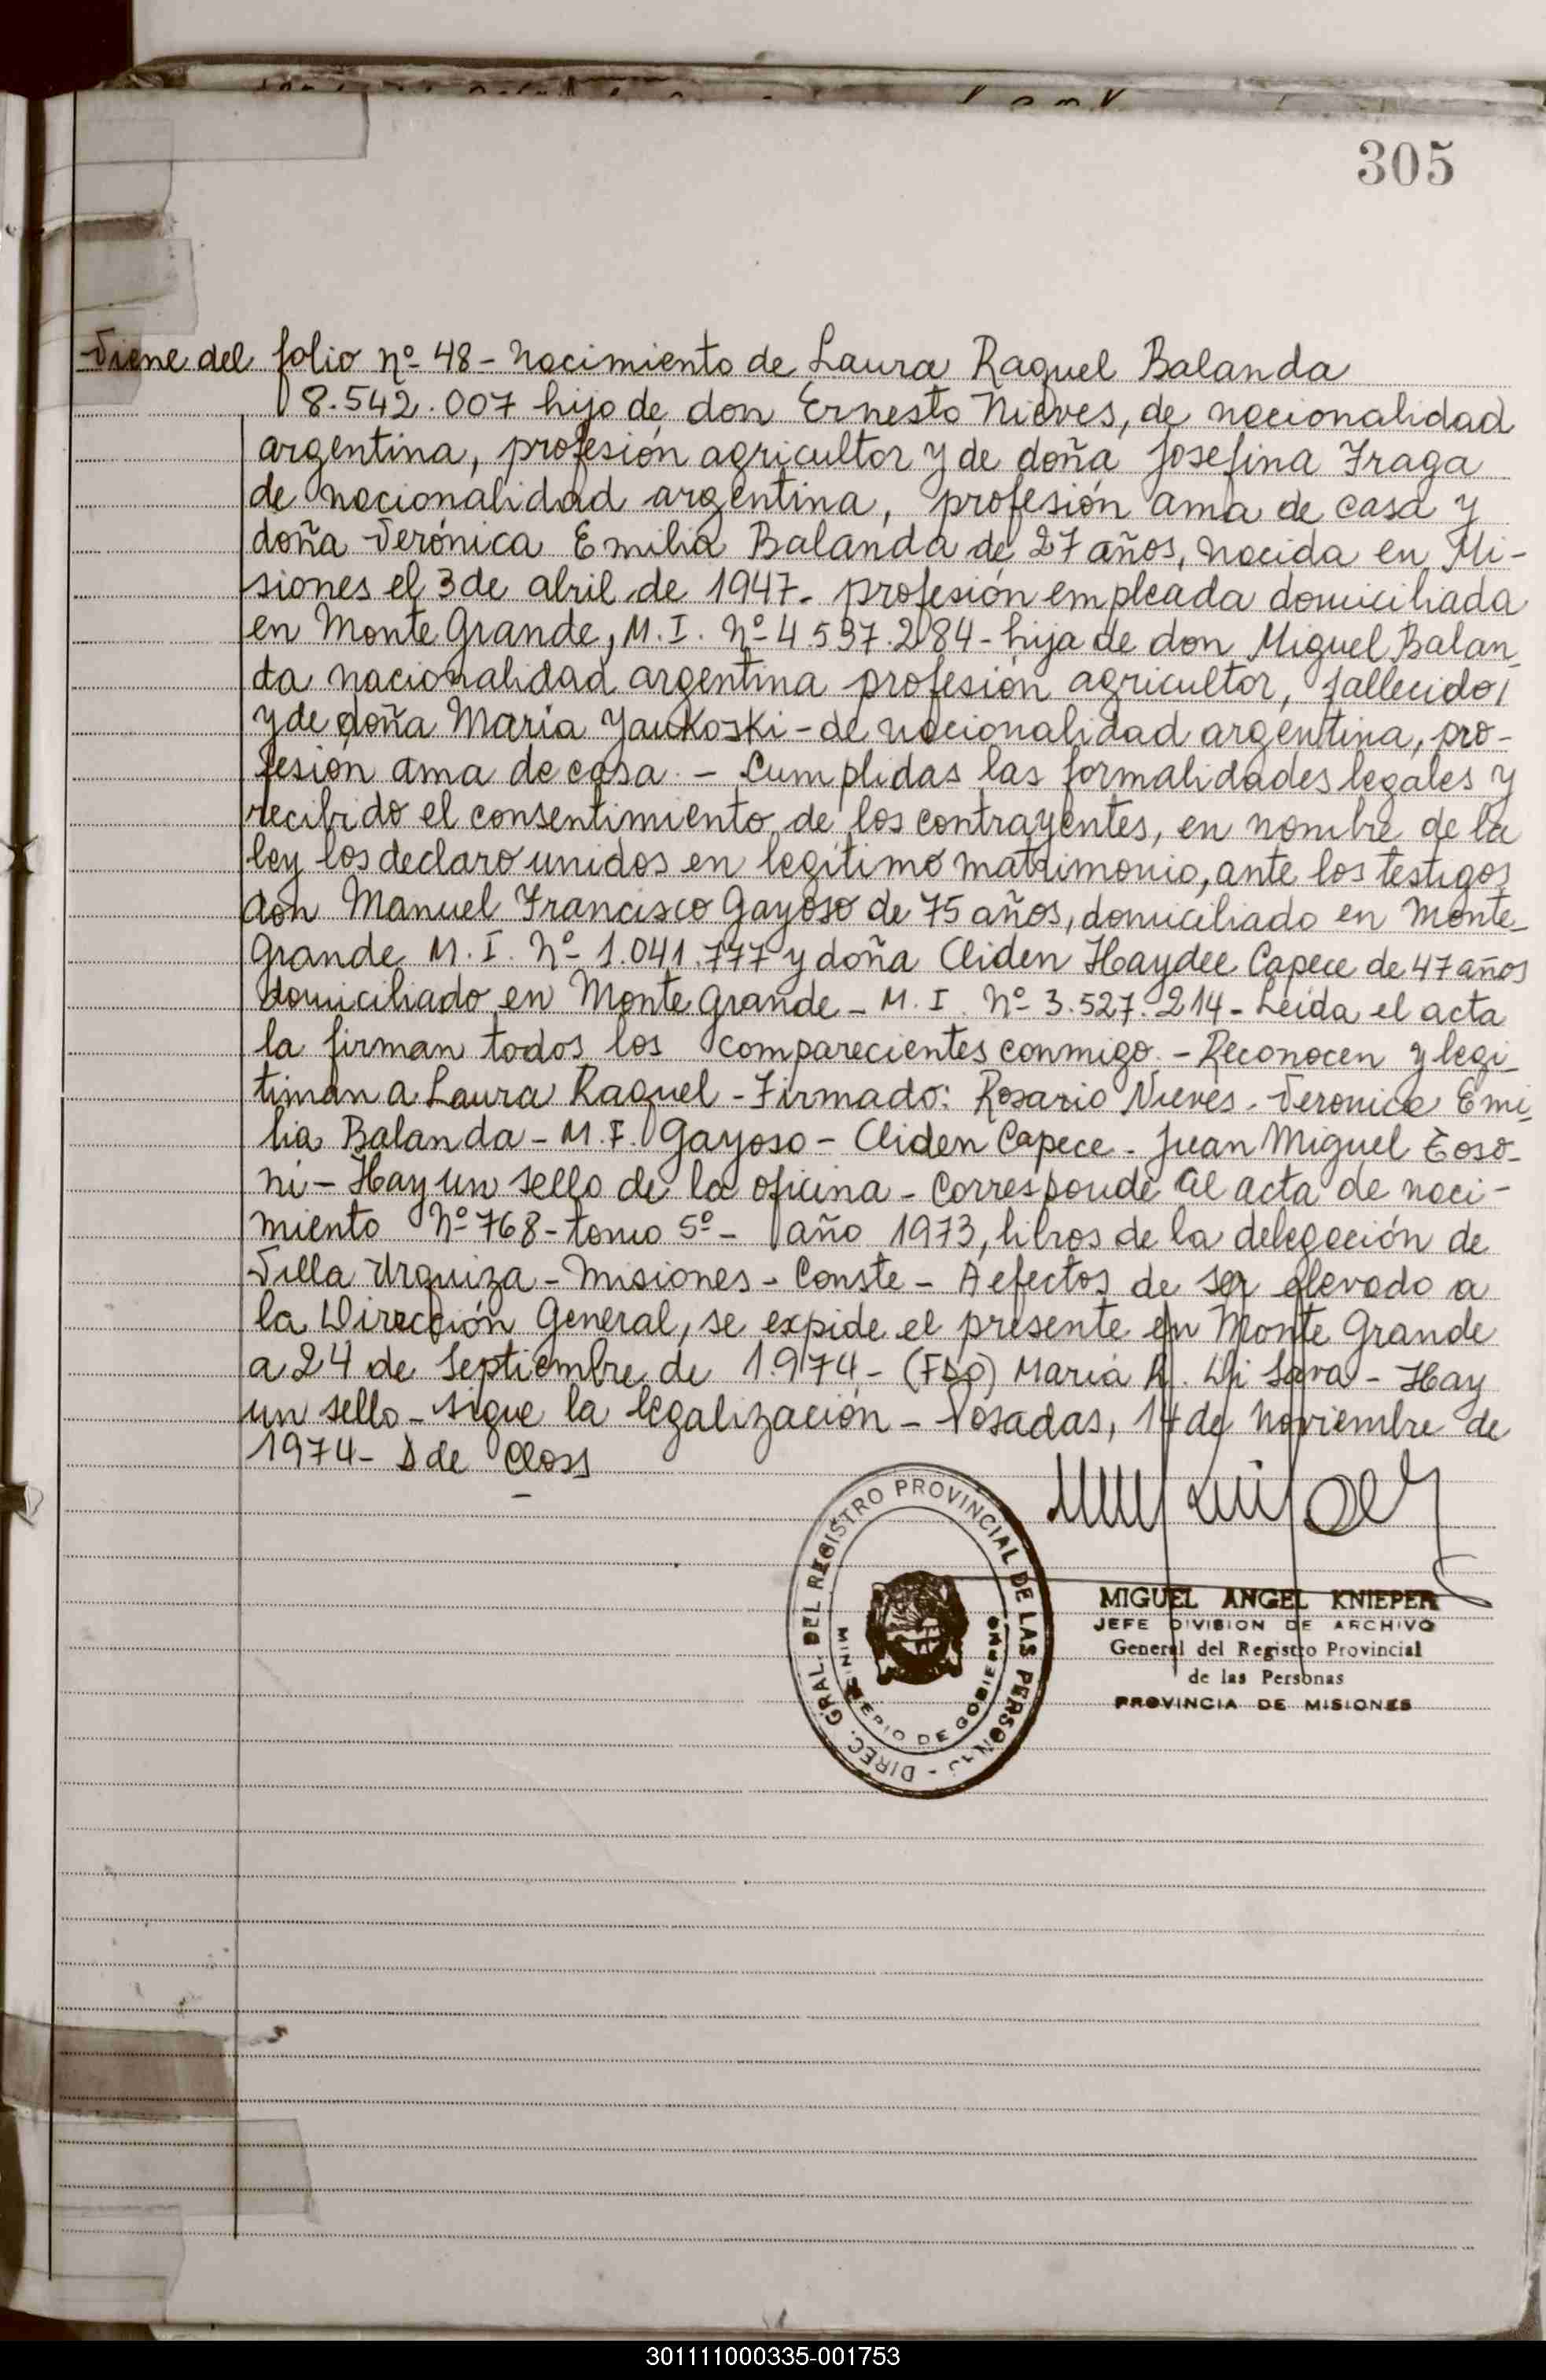 305
Viene del folio nº 48 - Nacimiento de Laura Raquel Balanda
8.542.007 hijo de don Ernesto Nieves, de nacionalidad
argentina, profesión agricultor y de doña Josefina Fraga
de nacionalidad argentina, profesión ama de casa y
doña Verónica Emilia Balanda de 27 años, nacida en Mi-
siones el 3 de abril de 1947. profesión empleada domiciliada
en Monte Grande, M. I. Nº 4.597.284 - hija de don Miguel Balan
da nacionalidad argentina profesión agricultor, fallecido,
y de doña María Yaukoski - de nacionalidad argentina, pro-
fesión ama de casa. - Cumplidas las formalidades legales y
recibido el consentimiento de los contrayentes, en nombre de la
ley los declaro unidos en legítimo matrimonio, ante los testigos
don Manuel Francisco Gayoso de 75 años, domiciliado en Monte
Grande M. I. Nº 1.041.777 y doña Cliden Haydee Capece de 47 años
domiciliado en Monte Grande - M. I. Nº 3.527.214 - Leída el acta
la firman todos los comparecientes conmigo. - Reconocen y legi
timan a Laura Raquel - Firmado: Rosario Nieves - Veronica Emi
lia Balanda - M. F. Gayoso - Cliden Capece - Juan Miguel Toso-
ni - Hay un sello de la oficina - Corresponde al acta de naci-
miento Nº 768 - tomo 5º - año 1973, libros de la delegación de
Villa Urquiza - Misiones - Conste - A efectos de ser elevado a
la Dirección General, se expide el presente en Monte Grande
a 24 de Septiembre de 1.974 - (FDO) María R. Di Sava - Hay
un sello - sigue la legalización - Posadas, 14 de Noviembre de
1974 - D de Closs
DIREC. GRAL. DEL REGISTRO PROVINCIAL DE LAS PERSONAS
MINISTERIO DE GOBIERNO
MIGUEL ANGEL KNIEPER
JEFE DIVISION DE ARCHIVO
General del Registro Provincial
de las Personas
PROVINCIA DE MISIONES
301111000335-001753